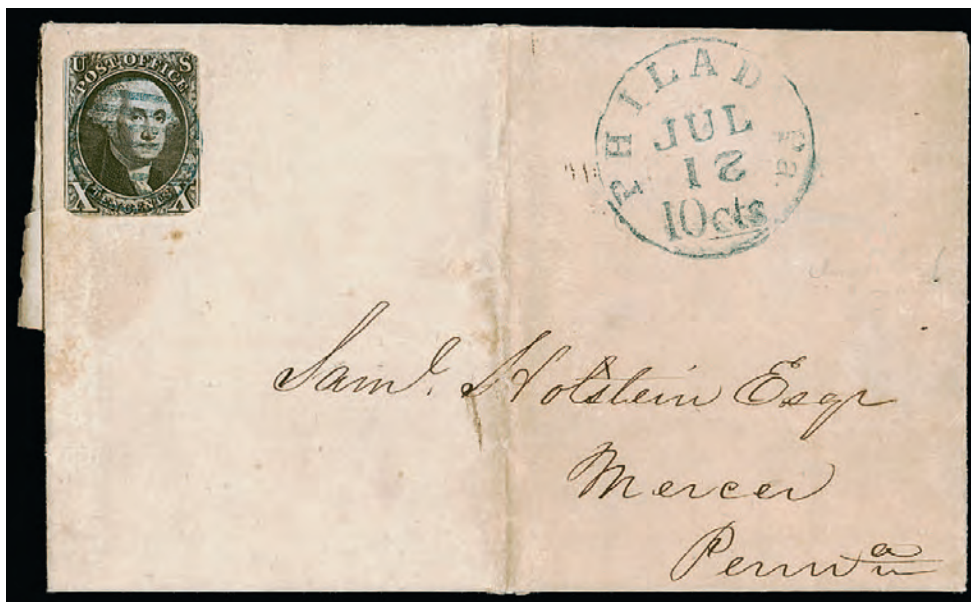 U S
POST OFFICE
X TEN CENTS X
PHILAD Pa.
JUL
12
10 cts
Saml. Holstein Esqr
Mercer
Pennna